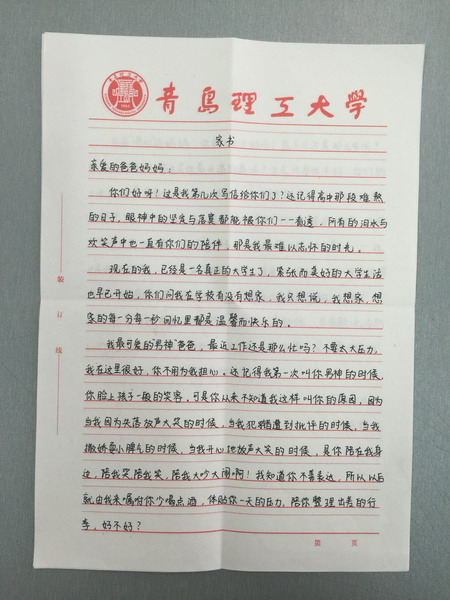 青岛理工大学
家书
亲爱的爸爸妈妈：
你们好呀！这是我第几次写信给你们了？还记得高中那段难熬
的日子，眼神中的坚定与落寞都能被你们一一看透，所有的泪水与
欢笑声中也一直有你们的陪伴，那是我最难以忘怀的时光。
现在的我，已经是一名真正的大学生了，紧张而美好的大学生活
也早已开始，你们问我在学校有没有想家，我只想说，我想家，想
家的每一分每一秒回忆里都是温馨而快乐的。
我最可爱的男神"爸爸，最近工作还是那么忙吗？不要太大压力，
我在这里很好，你不用为我担心。还记得我第一次叫你男神的时候，
你脸上孩子一般的笑容，可是你从来不知道我这样叫你的原因，因为
当我因为失落放声大哭的时候，当我犯错遭到批评的时候，当我
撒娇耍小脾气的时候，当我开心地放声大笑的时候，是你陪在我身
边，陪我哭陪我笑，陪我大吵大闹啊！我知道你不善表达，所以以后
就由我来嘱咐你少喝点酒，体贴你一天的压力，陪你整理出差的行
李，好不好？
装
订
线
第 页